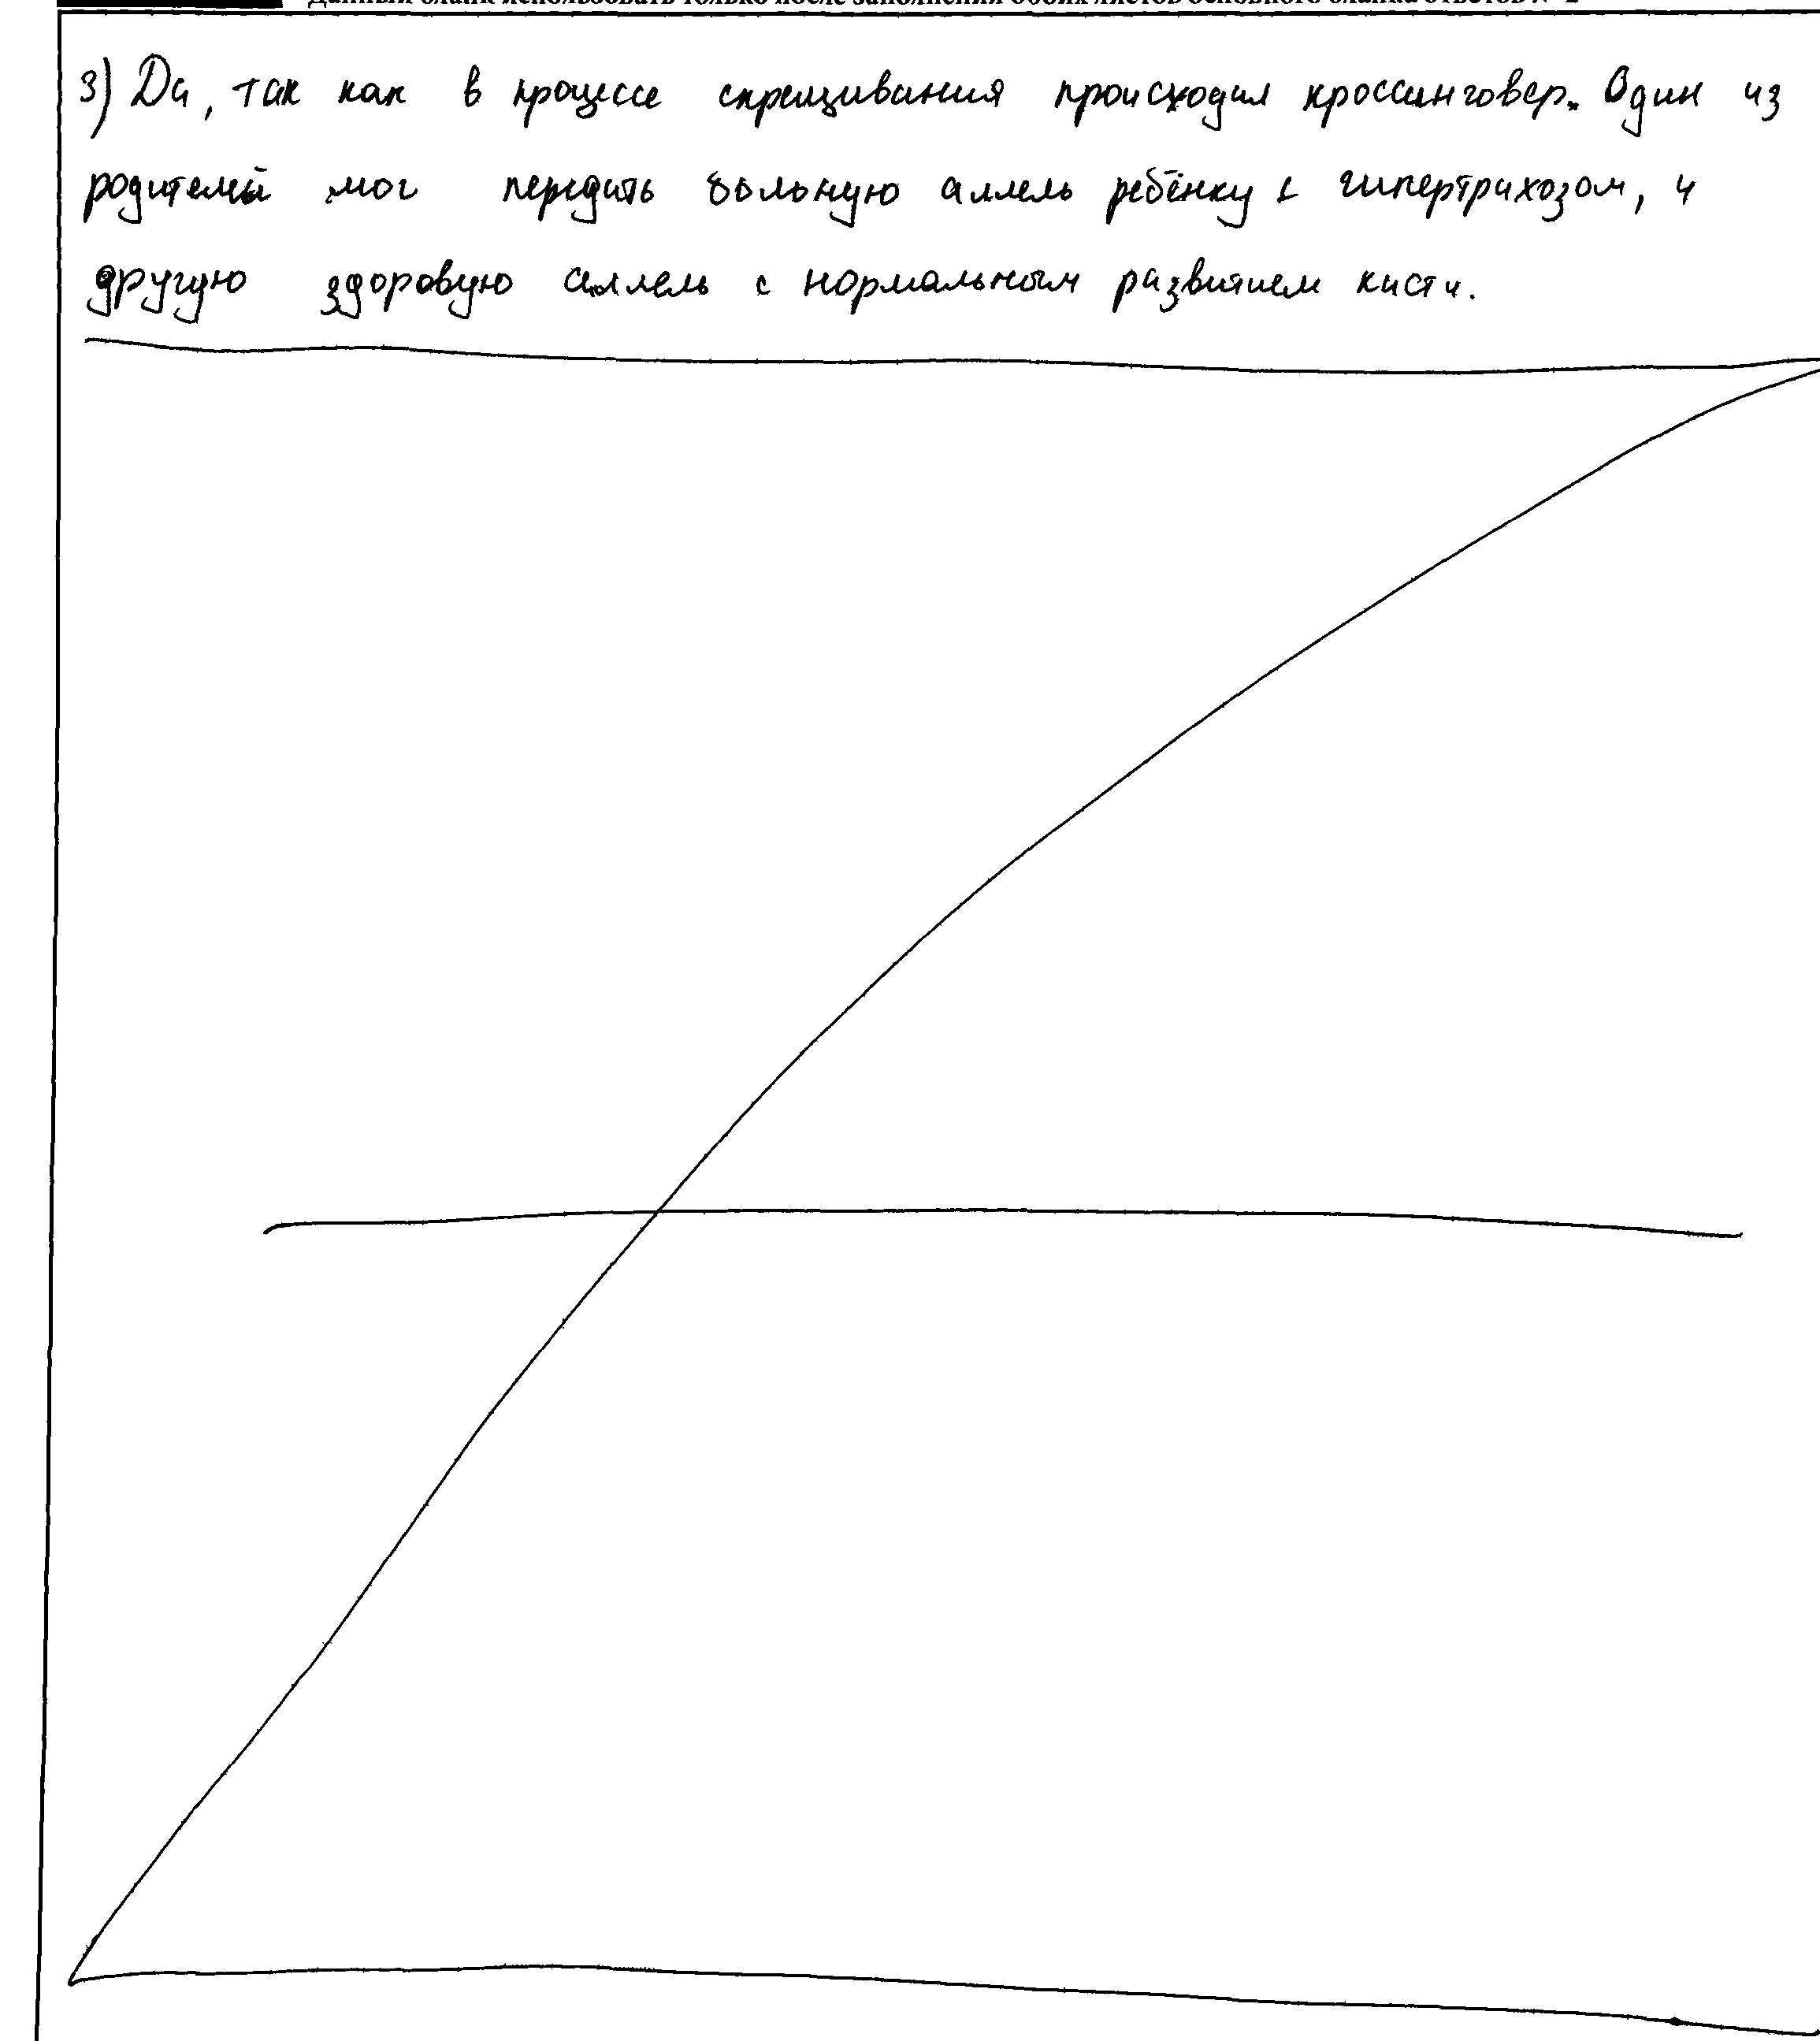 Данный бланк использовать только после заполнения обоих листов основного бланка ответов № 2
3) Да, так как в процессе скрещивания происходил кроссинговер. Один из
родителей мог передать больную аллель ребёнку с гипертрихозом, и
другую здоровую аллель с нормальным развитием кисти.